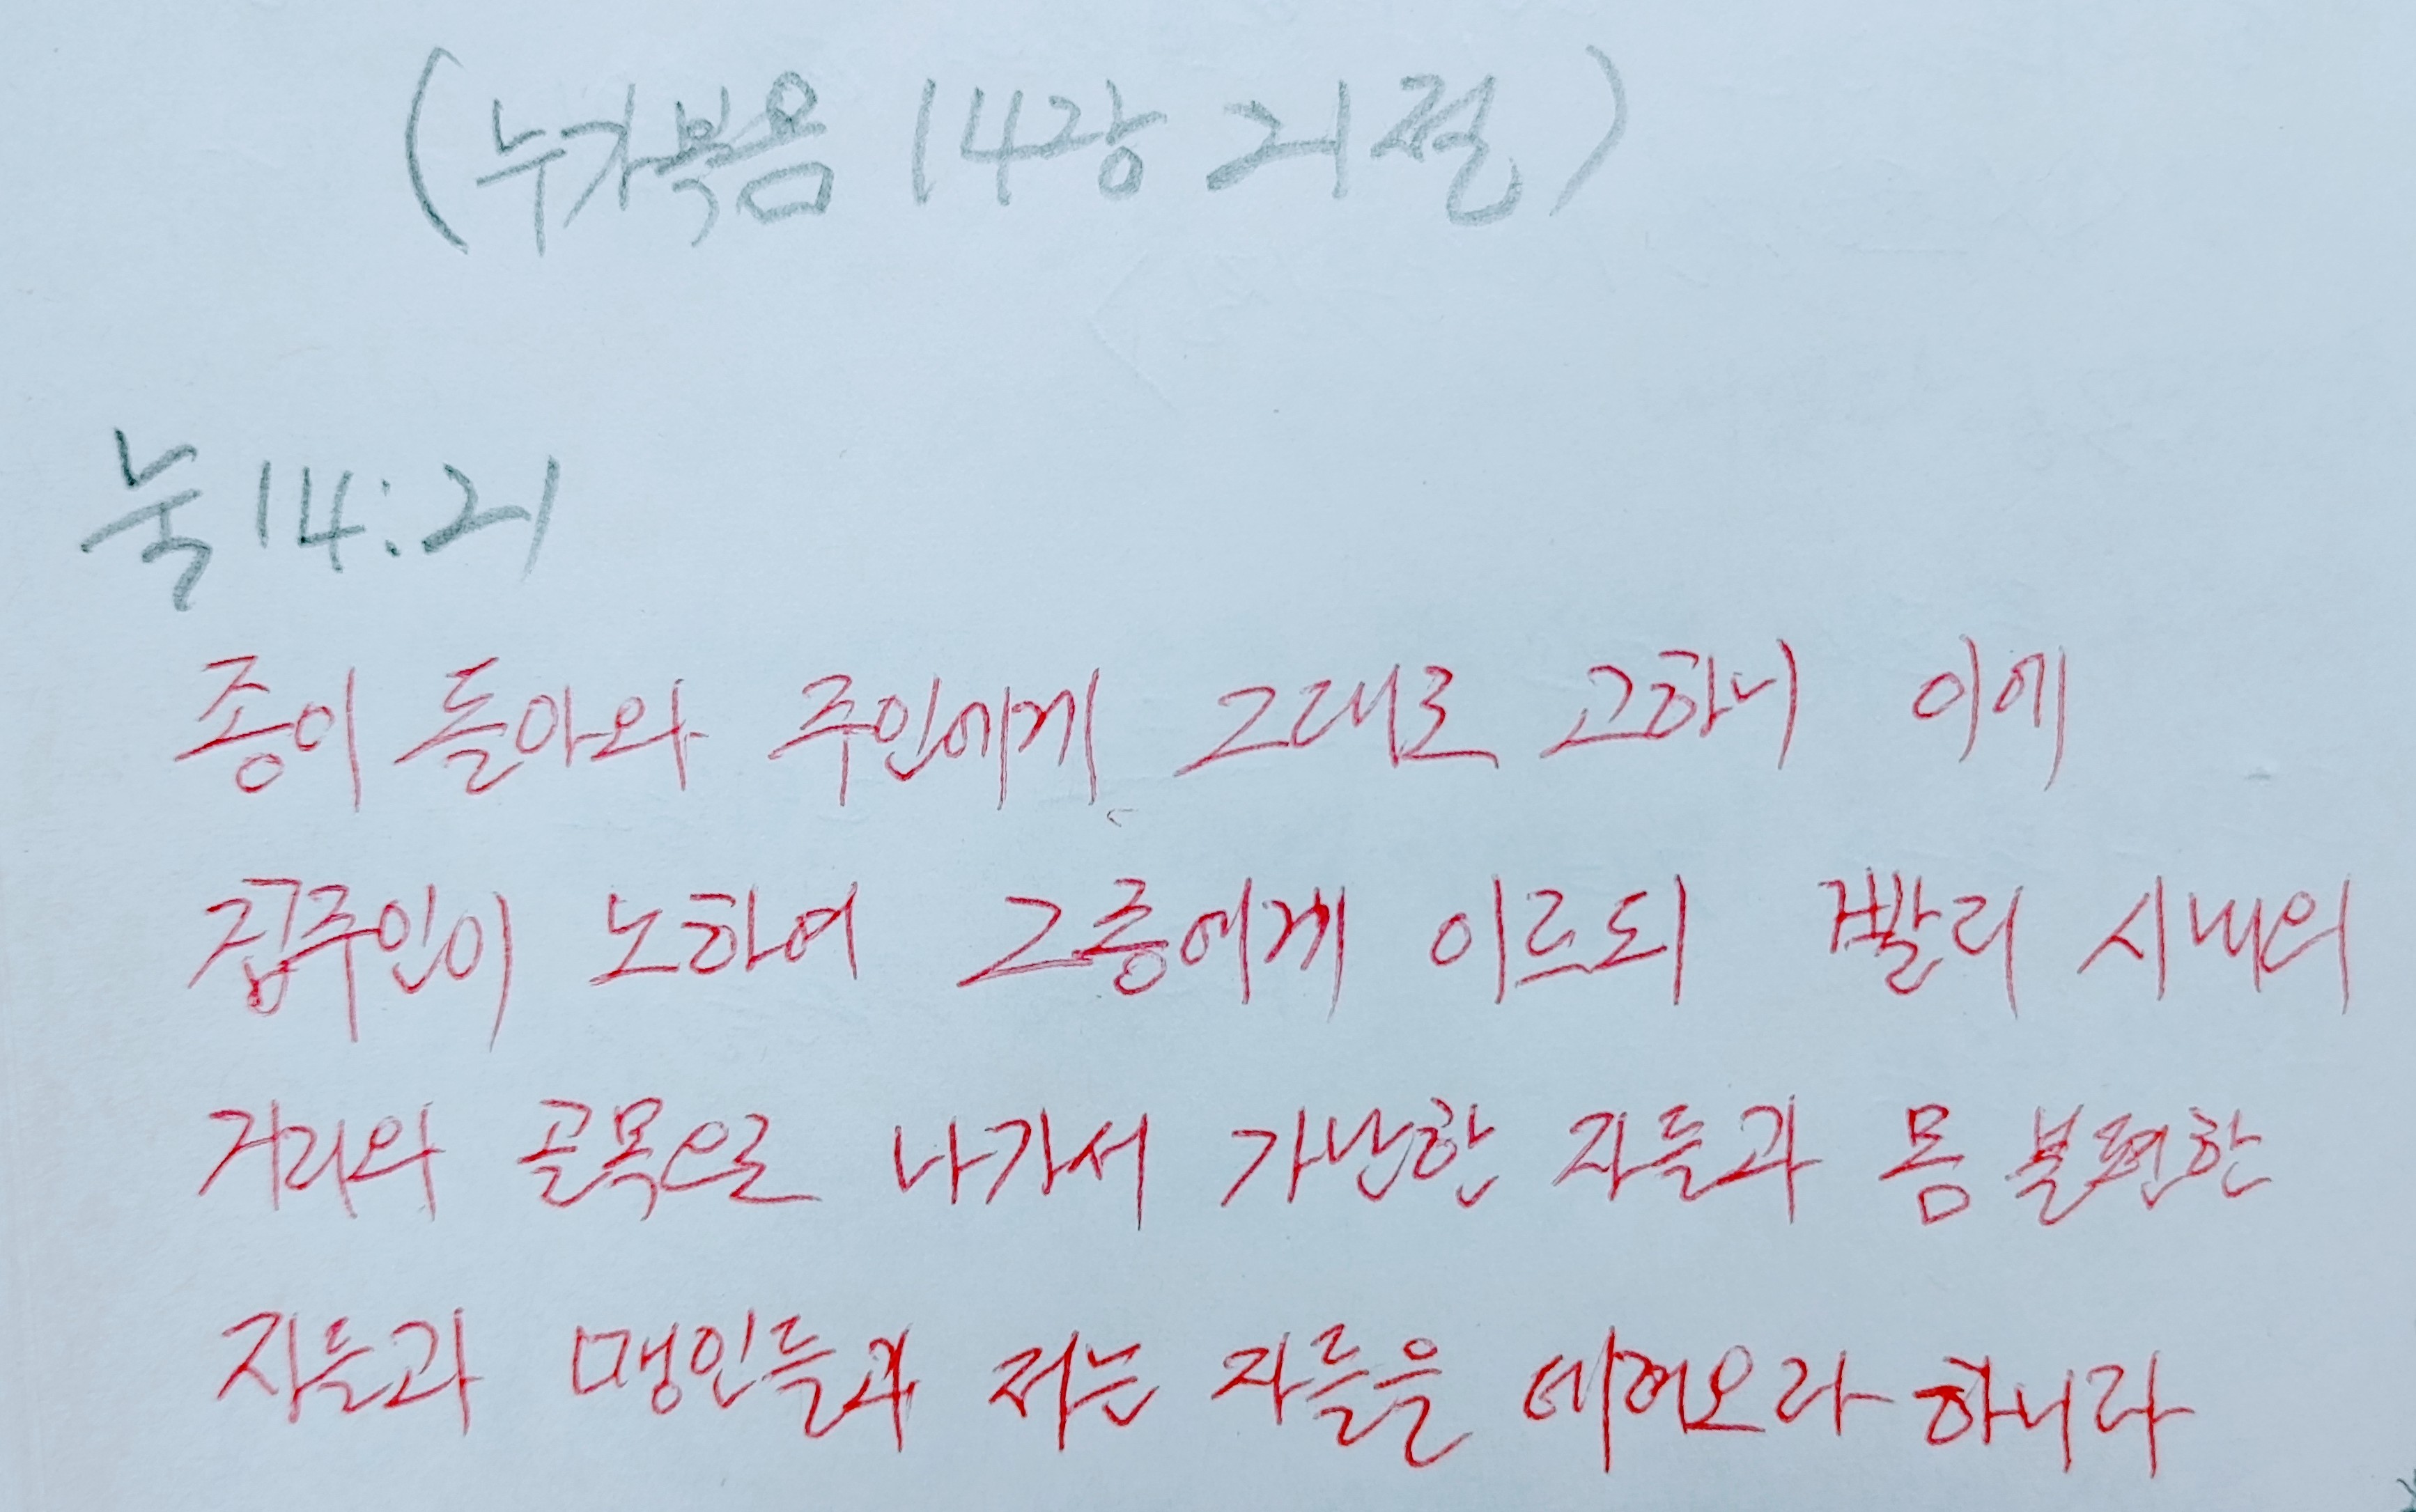 (누가복음 14장 21절)
눅 14:21
종이 돌아와 주인에게 그대로 고하니 이에
집주인이 노하여 그종에게 이르되 빨리 시내의
거리와 골목으로 나가서 가난한 자들과 몸 불편한
자들과 맹인들과 저는 자들을 데려오라 하니라